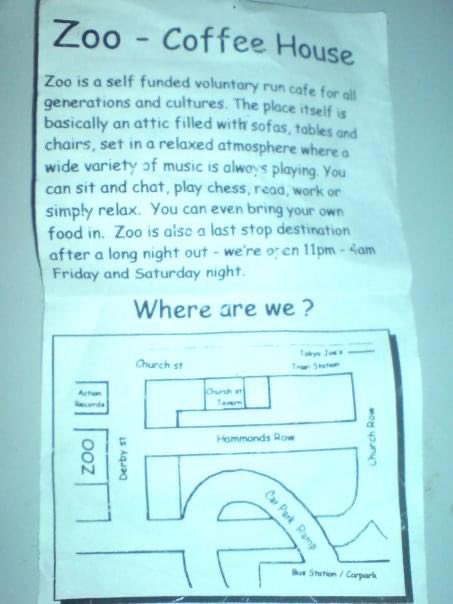 Zoo - Coffee House
Zoo is a self funded voluntary run cafe for all
generations and cultures. The place itself is
basically an attic filled with sofas, tables and
chairs, set in a relaxed atmosphere where a
wide variety of music is always playing. You
can sit and chat, play chess, read, work or
simply relax. You can even bring your own
food in. Zoo is also a last stop destination
after a long night out - we're open 11pm - 4am
Friday and Saturday night.
Where are we ?
Tokyo Joe's
Train Station
Church st
Action
Records
Church st
Tavern
ZOO
Derby st
Hammonds Row
Church Row
Car Park Ramp
Bus Station / Carpark